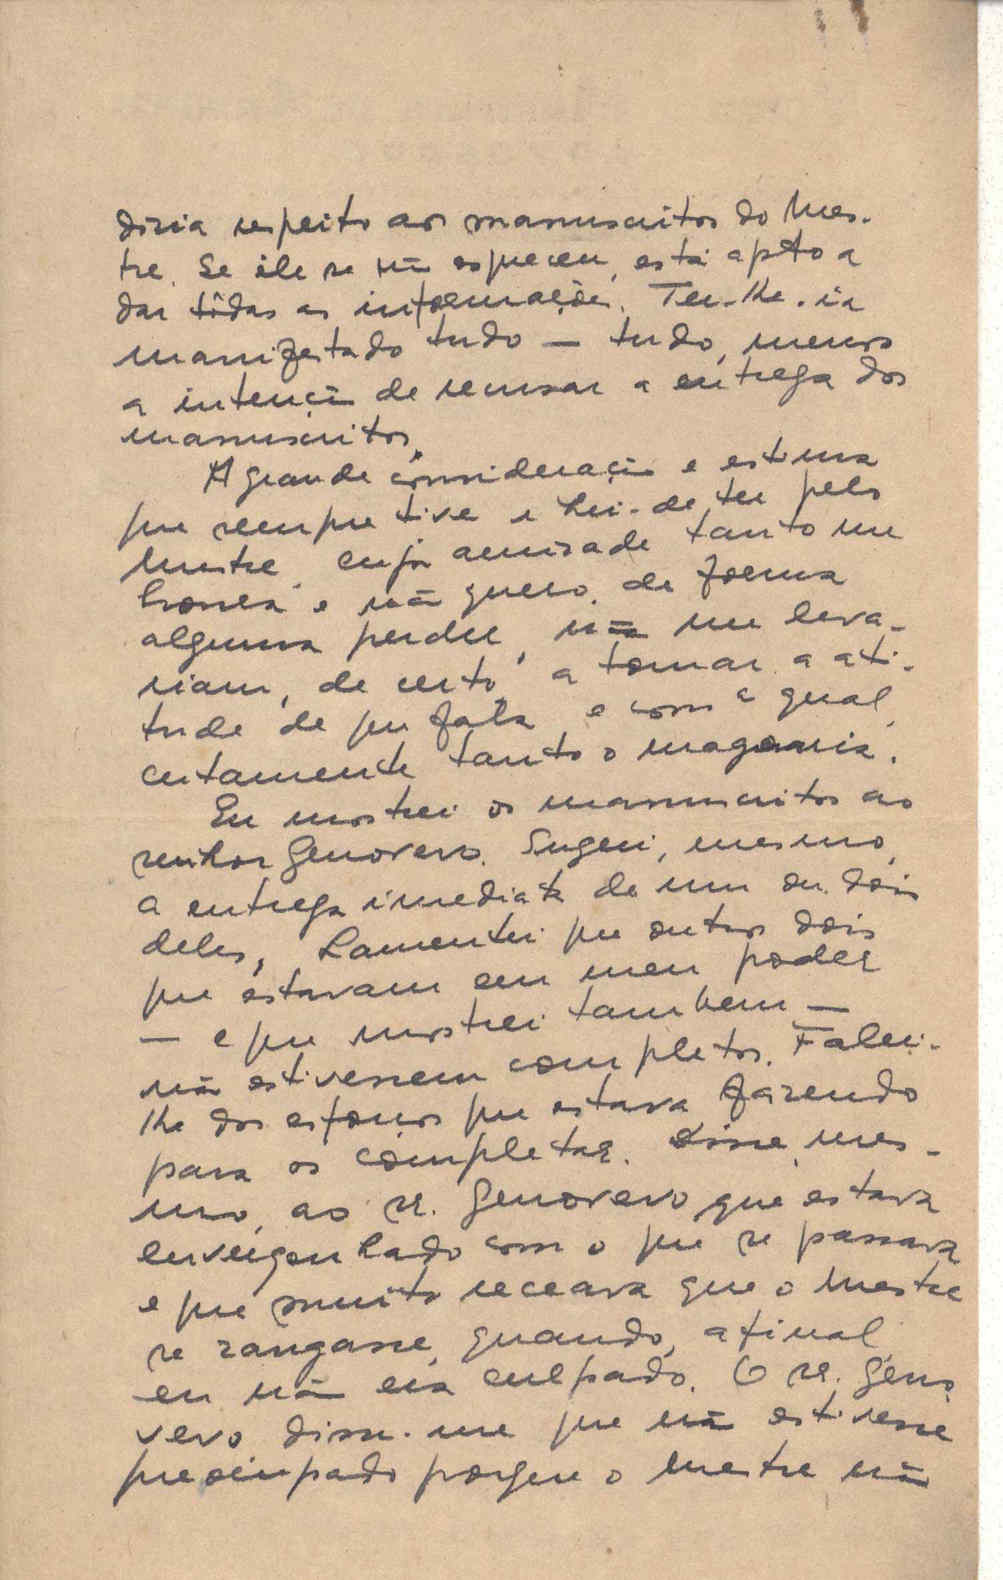 dizia respeito aos manuscritos do Mes-
tre. Se êle se não esqueceu, está apto a
dar tôdas as informações. Ter-lhe-ia
manifestado tudo — tudo, menos
a intenção de recusar a entrega dos
manuscritos.
A grande consideração e estima
que sempre tive e hei-de ter pelo
Mestre, cuja amizade tanto me
honra e não quero, de forma
alguma perder, não me leva-
riam, de certo, a tomar a ati-
tude de que fala e com a qual,
certamente tanto o magoaria.
Eu mostrei os manuscritos ao
senhor Genovevo. Sugeri, mesmo,
a entrega imediata de um ou dois
deles, Lamentei que outros dois
que estavam em meu poder
— e que mostrei tambem —
não estivessem completos. Falei-
lhe dos esforços que estava fazendo
para os completar. Disse, mes-
mo, ao sr. Genovevo que estava
envergonhado com o que se passava
e que muito receava que o Mestre
se zangasse, quando, afinal,
eu não era culpado. O sr. Geno
vevo disse-me que não estivesse
preocupado porque o Mestre não